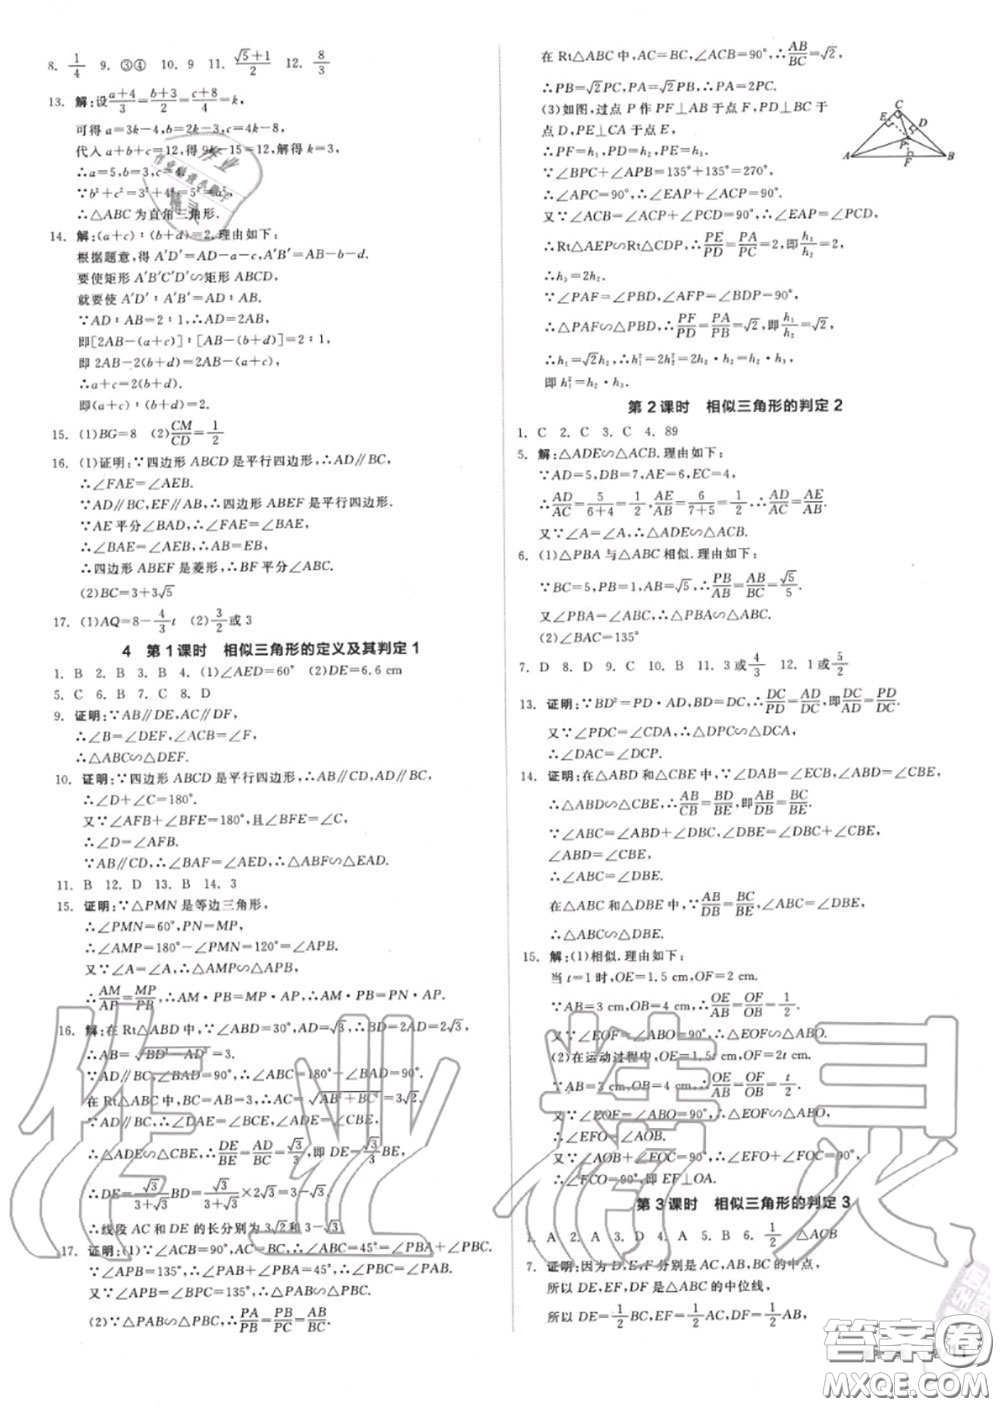 8. 1/4 9. ③④ 10. 9 11. (√5+1)/2 12. 8/3
13. 解:设(a+4)/3=(b+3)/2=(c+8)/4=k,
可得 a=3k-4,b=2k-3,c=4k-8,
代入 a+b+c=12,得 9k-15=12,解得 k=3,
∴a=5,b=3,c=4,
∵b²+c²=3²+4²=5²=a²,
∴△ABC 为直角三角形.
14. 解:(a+c)∶(b+d)=2.理由如下:
根据题意,得 A′D′=AD-a-c,A′B′=AB-b-d.
要使矩形 A′B′C′D′∽矩形 ABCD,
就要使 A′D′∶A′B′=AD∶AB.
∵AD∶AB=2∶1,∴AD=2AB,
即[2AB-(a+c)]∶[AB-(b+d)]=2∶1,
即 2AB-2(b+d)=2AB-(a+c),
∴a+c=2(b+d),
即(a+c)∶(b+d)=2.
15. (1)BG=8 (2)CM/CD=1/2
16. (1)证明:∵四边形 ABCD 是平行四边形,∴AD∥BC,
∴∠FAE=∠AEB.
∵AD∥BC,EF∥AB,∴四边形 ABEF 是平行四边形.
∵AE 平分∠BAD,∴∠FAE=∠BAE,
∴∠BAE=∠AEB,∴AB=EB,
∴四边形 ABEF 是菱形,∴BF 平分∠ABC.
(2)BC=3+3√5
17. (1)AQ=8-4/3t (2)3/2或 3
4 第 1 课时 相似三角形的定义及其判定 1
1. B 2. B 3. B 4. (1)∠AED=60° (2)DE=6.6 cm
5. C 6. B 7. C 8. D
9. 证明:∵AB∥DE,AC∥DF,
∴∠B=∠DEF,∠ACB=∠F,
∴△ABC∽△DEF.
10. 证明:∵四边形 ABCD 是平行四边形,
∴∠D+∠C=180°.
又∵∠AFB+∠BFE=180°,且∠BFE=∠C,
∴∠D=∠AFB.
∵AB∥CD,∴∠BAF=∠AED,∴△ABF∽△EAD.
11. B 12. D 13. B 14. 3
15. 证明:∵△PMN 是等边三角形,
∴∠PMN=60°,PN=MP,
∴∠AMP=180°-∠PMN=120°=∠APB.
又∵∠A=∠A,∴△AMP∽△APB,
∴AM/AP=MP/PB,∴AM·PB=MP·AP,∴AM·PB=PN·AP.
16. 解:在 Rt△ABD 中,∵∠ABD=30°,AD=√3,∴BD=2AD=2√3,
∴AB=√(BD²-AD²)=3.
∵∠BAC+∠BAD=90°,∴∠ABC=180°-∠BAD=90°.
在 Rt△ABC 中,BC=AB=3,∴AC=√(AB²+BC²)=3√2.
∵∠BAD=∠ABC=90°,∴AD∥BC,∴△ADE∽△CBE,
∴DE/BE=AD/BC=√3/3,即 DE/BE=√3/3,
∴DE=√3/(3+√3)BD=√3/(3+√3)×2√3=3-√3.
∴线段 AC 和 DE 的长分别为 3√2和 3-√3.
17. 证明:(1)∵∠ACB=90°,AC=BC,∴∠ABC=45°=∠PBA+∠PBC.
又∵∠APB=135°,∴∠PAB+∠PBA=45°,∴∠PBC=∠PAB.
又∵∠APB=∠BPC=135°,∴△PAB∽△PBC.
(2)∵△PAB∽△PBC,∴PA/PB=PB/PC=AB/BC.
在 Rt△ABC 中,AC=BC,∠ACB=90°,∴AB/BC=√2,
∴PB=√2PC,PA=√2PB,∴PA=2PC.
(3)如图,过点 P 作 PF⊥AB 于点 F,PD⊥BC 于
点 D,PE⊥CA 于点 E,
∴PF=h₁,PD=h₂,PE=h₃.
∵∠BPC+∠APB=135°+135°=270°,
∴∠APC=90°,∴∠EAP+∠ACP=90°.
又∵∠ACB=∠ACP+∠PCD=90°,∴∠EAP=∠PCD,
∴Rt△AEP∽Rt△CDP,∴PE/PD=PA/PC=2,即h₃/h₂=2,
∴h₃=2h₂.
∵∠PAF=∠PBD,∠AFP=∠BDP=90°,
∴△PAF∽△PBD,∴PF/PD=PA/PB=√2,即h₁/h₂=√2,
∴h₁=√2h₂,∴h₁²=2h₂²=2h₂·h₂=h₂·h₃,
即 h₁²=h₂·h₃.
C
E
D
P
A
F
B
第 2 课时 相似三角形的判定 2
1. C 2. C 3. C 4. 89
5. 解:△ADE∽△ACB.理由如下:
∵AD=5,DB=7,AE=6,EC=4,
∴AD/AC=5/(6+4)=1/2,AE/AB=6/(7+5)=1/2,∴AD/AC=AE/AB.
又∵∠A=∠A,∴△ADE∽△ACB.
6. (1)△PBA 与△ABC 相似.理由如下:
∵BC=5,PB=1,AB=√5,∴PB/AB=AB/BC=√5/5.
又∵∠PBA=∠ABC,∴△PBA∽△ABC.
(2)∠BAC=135°
7. D 8. D 9. D 10. B 11. 3 或4/3 12. 1 或5/2
13. 证明:∵BD²=PD·AD,BD=DC,∴DC/PD=AD/DC,即DC/AD=PD/DC.
又∵∠PDC=∠CDA,∴△PDC∽△CDA,
∴∠DAC=∠DCP.
14. 证明:在△ABD 和△CBE 中,∵∠BAD=∠BCE,∠ABD=∠CBE,
∴△ABD∽△CBE,∴AB/CB=BD/BE,即AB/BD=BC/BE.
∵∠ABC=∠ABD+∠DBC,∠DBE=∠DBC+∠CBE,
∠ABD=∠CBE,
∴∠ABC=∠DBE.
在△ABC 和△DBE 中,AB/DB=BC/BE,∠ABC=∠DBE,
∴△ABC∽△DBE.
15. 解:(1)相似.理由如下:
当 t=1 时,OE=1.5 cm,OF=2 cm.
∵AB=3 cm,OB=4 cm,∴OE/AB=OF/OB=1/2.
又∵∠EOF=∠ABO=90°,∴△EOF∽△ABO.
(2)在运动过程中,OE=1.5t cm,OF=2t cm.
∵AB=3 cm,OB=4 cm,∴OE/AB=OF/OB=t/2.
又∵∠EOF=∠ABO=90°,∴△EOF∽△ABO,
∴∠EFO=∠AOB.
又∵∠AOB+∠EOC=90°,∴∠EFO+∠EOC=90°,
∴∠FCO=90°,即 EF⊥OA.
第 3 课时 相似三角形的判定 3
1. A 2. A 3. D 4. A 5. B 6. 1/2 △ACB
7. 证明:因为 D,E,F 分别是 AC,AB,BC 的中点,
所以 DE,EF,DF 是△ABC 的中位线,
所以 DE=1/2BC,EF=1/2AC,DF=1/2AB,
作业精灵
答案圈
MXQE.COM